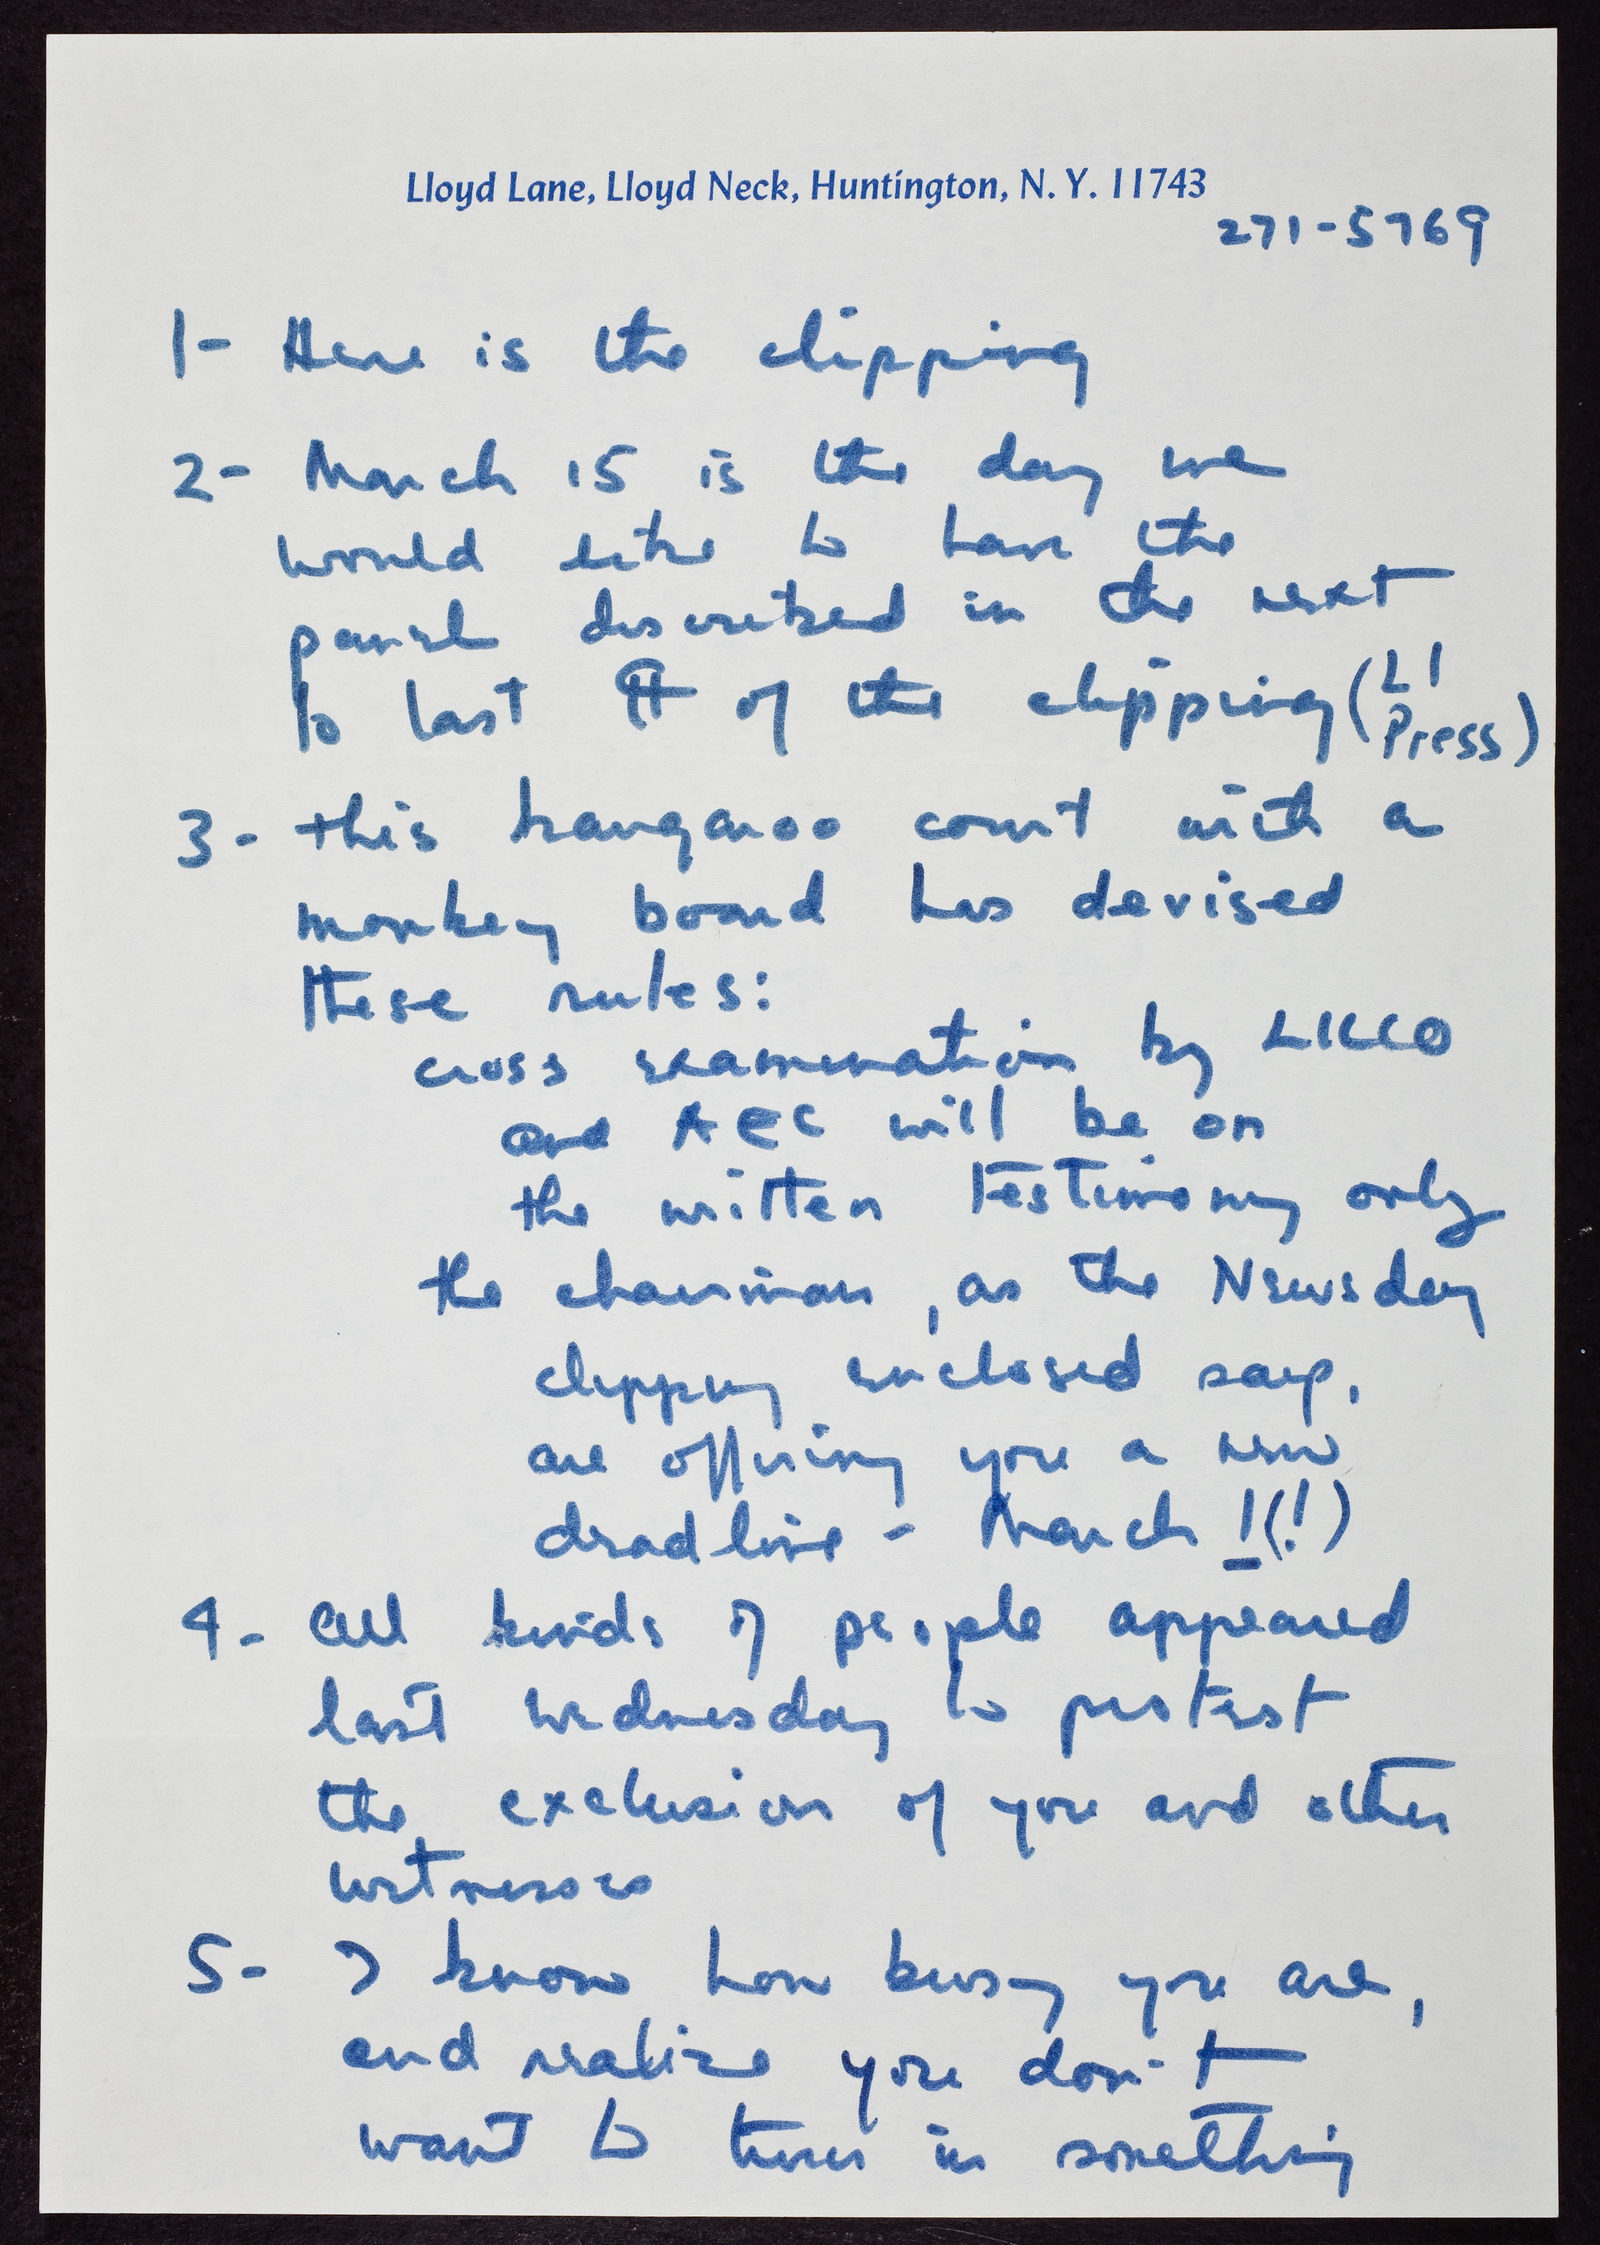 Lloyd Lane, Lloyd Neck, Huntington, N. Y. 11743
271-5769
1- Here is the clipping
2- March 15 is the day we
would like to have the
panel described in the next
to last ¶ of the clipping (LI
Press)
3- this kangaroo court with a
monkey board has devised
these rules:
cross examination by LILCO
and AEC will be on
the written testimony only
the chairman, as the Newsday
clipping enclosed says,
are offering you a new
deadline - March 1(!)
4- All kinds of people appeared
last wednesday to protest
the exclusion of you and other
witnesses
5- I know how busy you are,
and realize you don't
want to turn in something